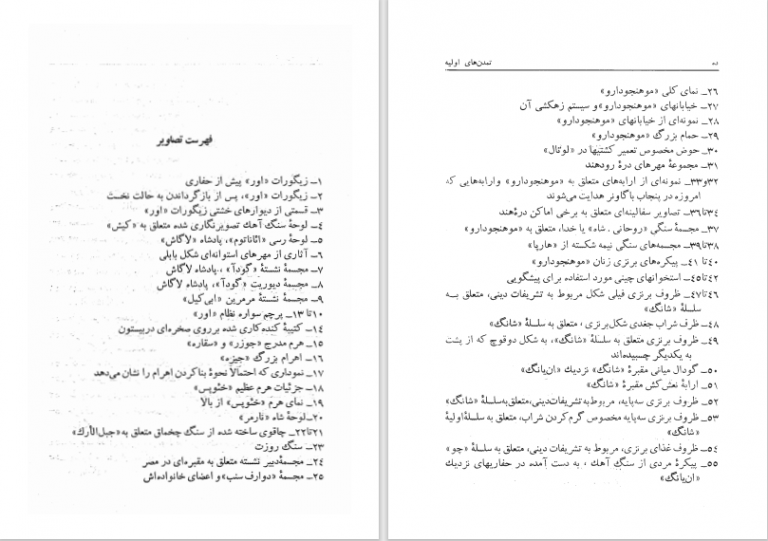 فهرست تصاویر
۱ــ زیگورات «اور» پیش از حفاری
۲ــ زیگورات «اور»، پس از بازگرداندن به حالت نخست
۳ــ قسمتی از دیوارهای خشتی زیگورات «اور»
۴ــ لوحهٔ سنگ آهک تصویرنگاری شده متعلق به «کیش»
۵ــ لوحهٔ رسی «اناتوم»، پادشاه «لاگاش»
۶ــ آثاری از مهرهای استوانه‌ای شکل بابلی
۷ــ مجسمهٔ نشستهٔ «گودآ»، پادشاه لاگاش
۸ــ مجسمهٔ دیوریت «گودآ»، پادشاه لاگاش
۹ــ مجسمهٔ نشستهٔ مرمرین «ابی‌کیل»
۱۰تا ۱۳ــ پرچم سواره نظام «اور»
۱۴ــ کتیبهٔ کنده‌کاری شده برروی صخره‌ای دربیستون
۱۵ــ هرم مدرج «جوزر» و «سقاره»
۱۶ــ اهرام بزرگ «جیزه»
۱۷ــ نموداری که احتمالاً نحوهٔ بناکردن اهرام را نشان می‌دهد
۱۸ــ جزئیات هرم عظیم «خئوپس»
۱۹ــ نمای هرم «خئوپس» از بالا
۲۰ــ لوحهٔ شاه «نارمر»
۲۱تا۲۲ــ چاقوی ساخته شده از سنگ چخماق متعلق به«جبل‌الارک»
۲۳ــ سنگ روزت
۲۴ــ مجسمهٔ دبیر نشسته متعلق به مقبره‌ای در مصر
۲۵ــ مجسمهٔ «دوارف سنب» و اعضای خانواده‌اش
تمدن‌های اولیه
ده
۲۶ــ نمای کلی «موهنجودارو»
۲۷ــ خیابانهای «موهنجودارو»و سیستم زهکشی آن
۲۸ــ نمونه‌ای از خیابانهای «موهنجودارو»
۲۹ــ حمام بزرگ «موهنجودارو»
۳۰ــ حوض مخصوص تعمیر کشتیها در «لوتال»
۳۱ــ مجموعهٔ مهرهای درهٔ رودهند
۳۲و۳۳ــ نمونه‌ای از ارابه‌های متعلق به «موهنجودارو» وارابه‌هایی که
امروزه در پنجاب باگاونر هدایت می‌شوند
۳۴تا۳۶ــ تصاویر سفالینه‌ای متعلق به برخی اماکن درهٔهند
۳۷ــ مجسمهٔ سنگی «روحانی . شاه» یا خدا، متعلق به «موهنجودارو»
۳۸تا۳۹ــ مجسمه‌های سنگی نیمه شکسته از «هارپا»
۴۰تا ۴۱ــ پیکره‌های برنزی زنان «موهنجودارو»
۴۲تا۴۵ــ استخوانهای چینی مورد استفاده برای پیشگویی
۴۶تا۴۷ــ ظروف برنزی فیلی شکل مربوط به تشریفات دینی، متعلق به
سلسلهٔ «شانگ»
۴۸ــ ظرف شراب جغدی شکل‌برنزی، متعلق به سلسلهٔ «شانگ»
۴۹ــ ظروف برنزی متعلق به سلسلهٔ «شانگ»، به شکل دوقوچ که از پشت
به یکدیگر چسبیده‌اند
۵۰ــ گودال میانی مقبرهٔ «شانگ» نزدیک «ان‌یانگ»
۵۱ــ ارابهٔ نعش‌کش مقبرهٔ «شانگ»
۵۲ــ ظروف برنزی سه‌پایه، مربوط‌به‌تشریفات‌دینی،متعلق‌به‌سلسلهٔ «شانگ»
۵۳ــ ظروف برنزی سه‌پایه مخصوص گرم کردن شراب، متعلق به سلسلهٔ‌اولیهٔ
«شانگ»
۵۴ــ ظروف غذای برنزی، مربوط به تشریفات دینی، متعلق به سلسلهٔ «چو»
۵۵ــ پیکرهٔ مردی از سنگ آهک ، به دست آمده در حفاریهای نزدیک
«ان‌یانگ»